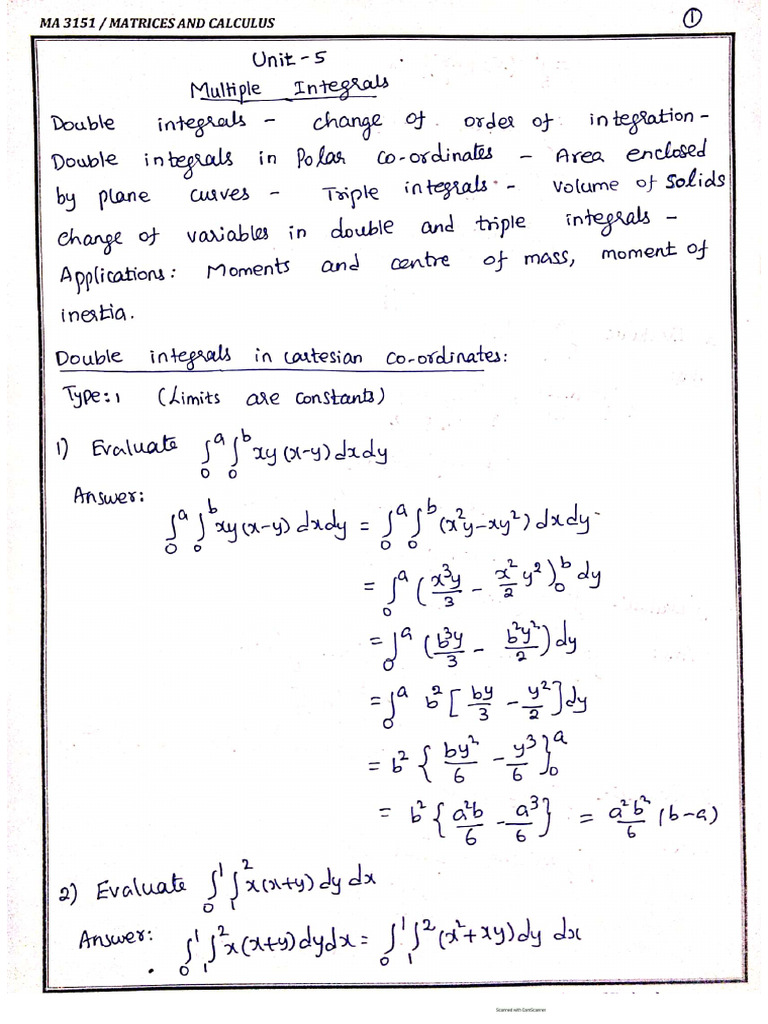 MA 3151 / MATRICES AND CALCULUS
①
Unit - 5
Multiple Integrals
Double integrals - change of order of integration -
Double integrals in Polar co-ordinates - Area enclosed
by plane curves - Triple integrals - Volume of Solids
change of variables in double and triple integrals -
Applications: Moments and centre of mass, moment of
inertia.
Double integrals in cartesian co-ordinates:
Type: 1 (Limits are constants)
1) Evaluate ∫₀ᵃ ∫₀ᵇ xy (x-y) dx dy
Answer:
∫₀ᵃ ∫₀ᵇ xy (x-y) dx dy = ∫₀ᵃ ∫₀ᵇ (x²y - xy²) dx dy
= ∫₀ᵃ (x³y/3 - x²/2 y²)₀ᵇ dy
= ∫₀ᵃ (b³y/3 - b²y²/2) dy
= ∫₀ᵃ b² [by/3 - y²/2] dy
= b² {by²/6 - y³/6}₀ᵃ
= b² {a²b/6 - a³/6} = a²b²/6 (b-a)
2) Evaluate ∫₀¹ ∫₁² x(x+y) dy dx
Answer: ∫₀¹ ∫₁² x(x+y) dy dx = ∫₀¹ ∫₁² (x² + xy) dy dx
Scanned with CamScanner